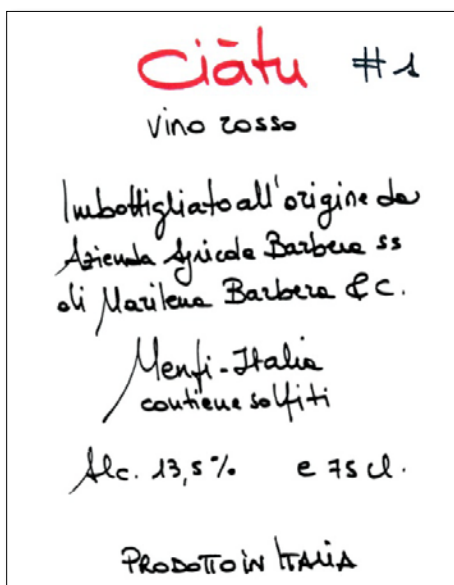 Ciātu #1
vino rosso
Imbottigliato all'origine da
Azienda Agricola Barbera ss
di Marilena Barbera & C.
Menfi-Italia
contiene solfiti
Alc. 13,5% e 75 cl.
PRODOTTO IN ITALIA